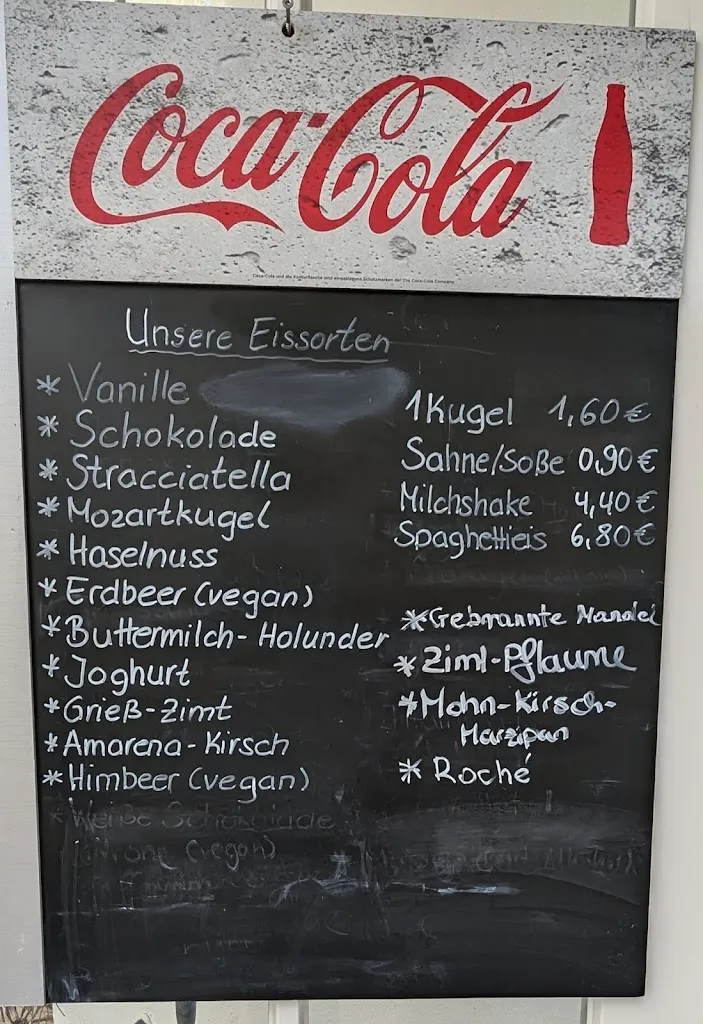 Coca-Cola
Coca-Cola und die Konturflasche sind eingetragene Schutzmarken der The Coca-Cola Company.
Unsere Eissorten
* Vanille
* Schokolade
* Stracciatella
* Mozartkugel
* Haselnuss
* Erdbeer (vegan)
* Buttermilch-Holunder
* Joghurt
* Grieß-Zimt
* Amarena-Kirsch
* Himbeer (vegan)
* Weiße Schokolade
(vegan)
1 Kugel 1,60€
Sahne/Soße 0,90€
Milchshake 4,40€
Spaghettieis 6,80€
* Gebrannte Mandel
* Zimt-Pflaume
* Mohn-Kirsch-
Marzipan
* Roché